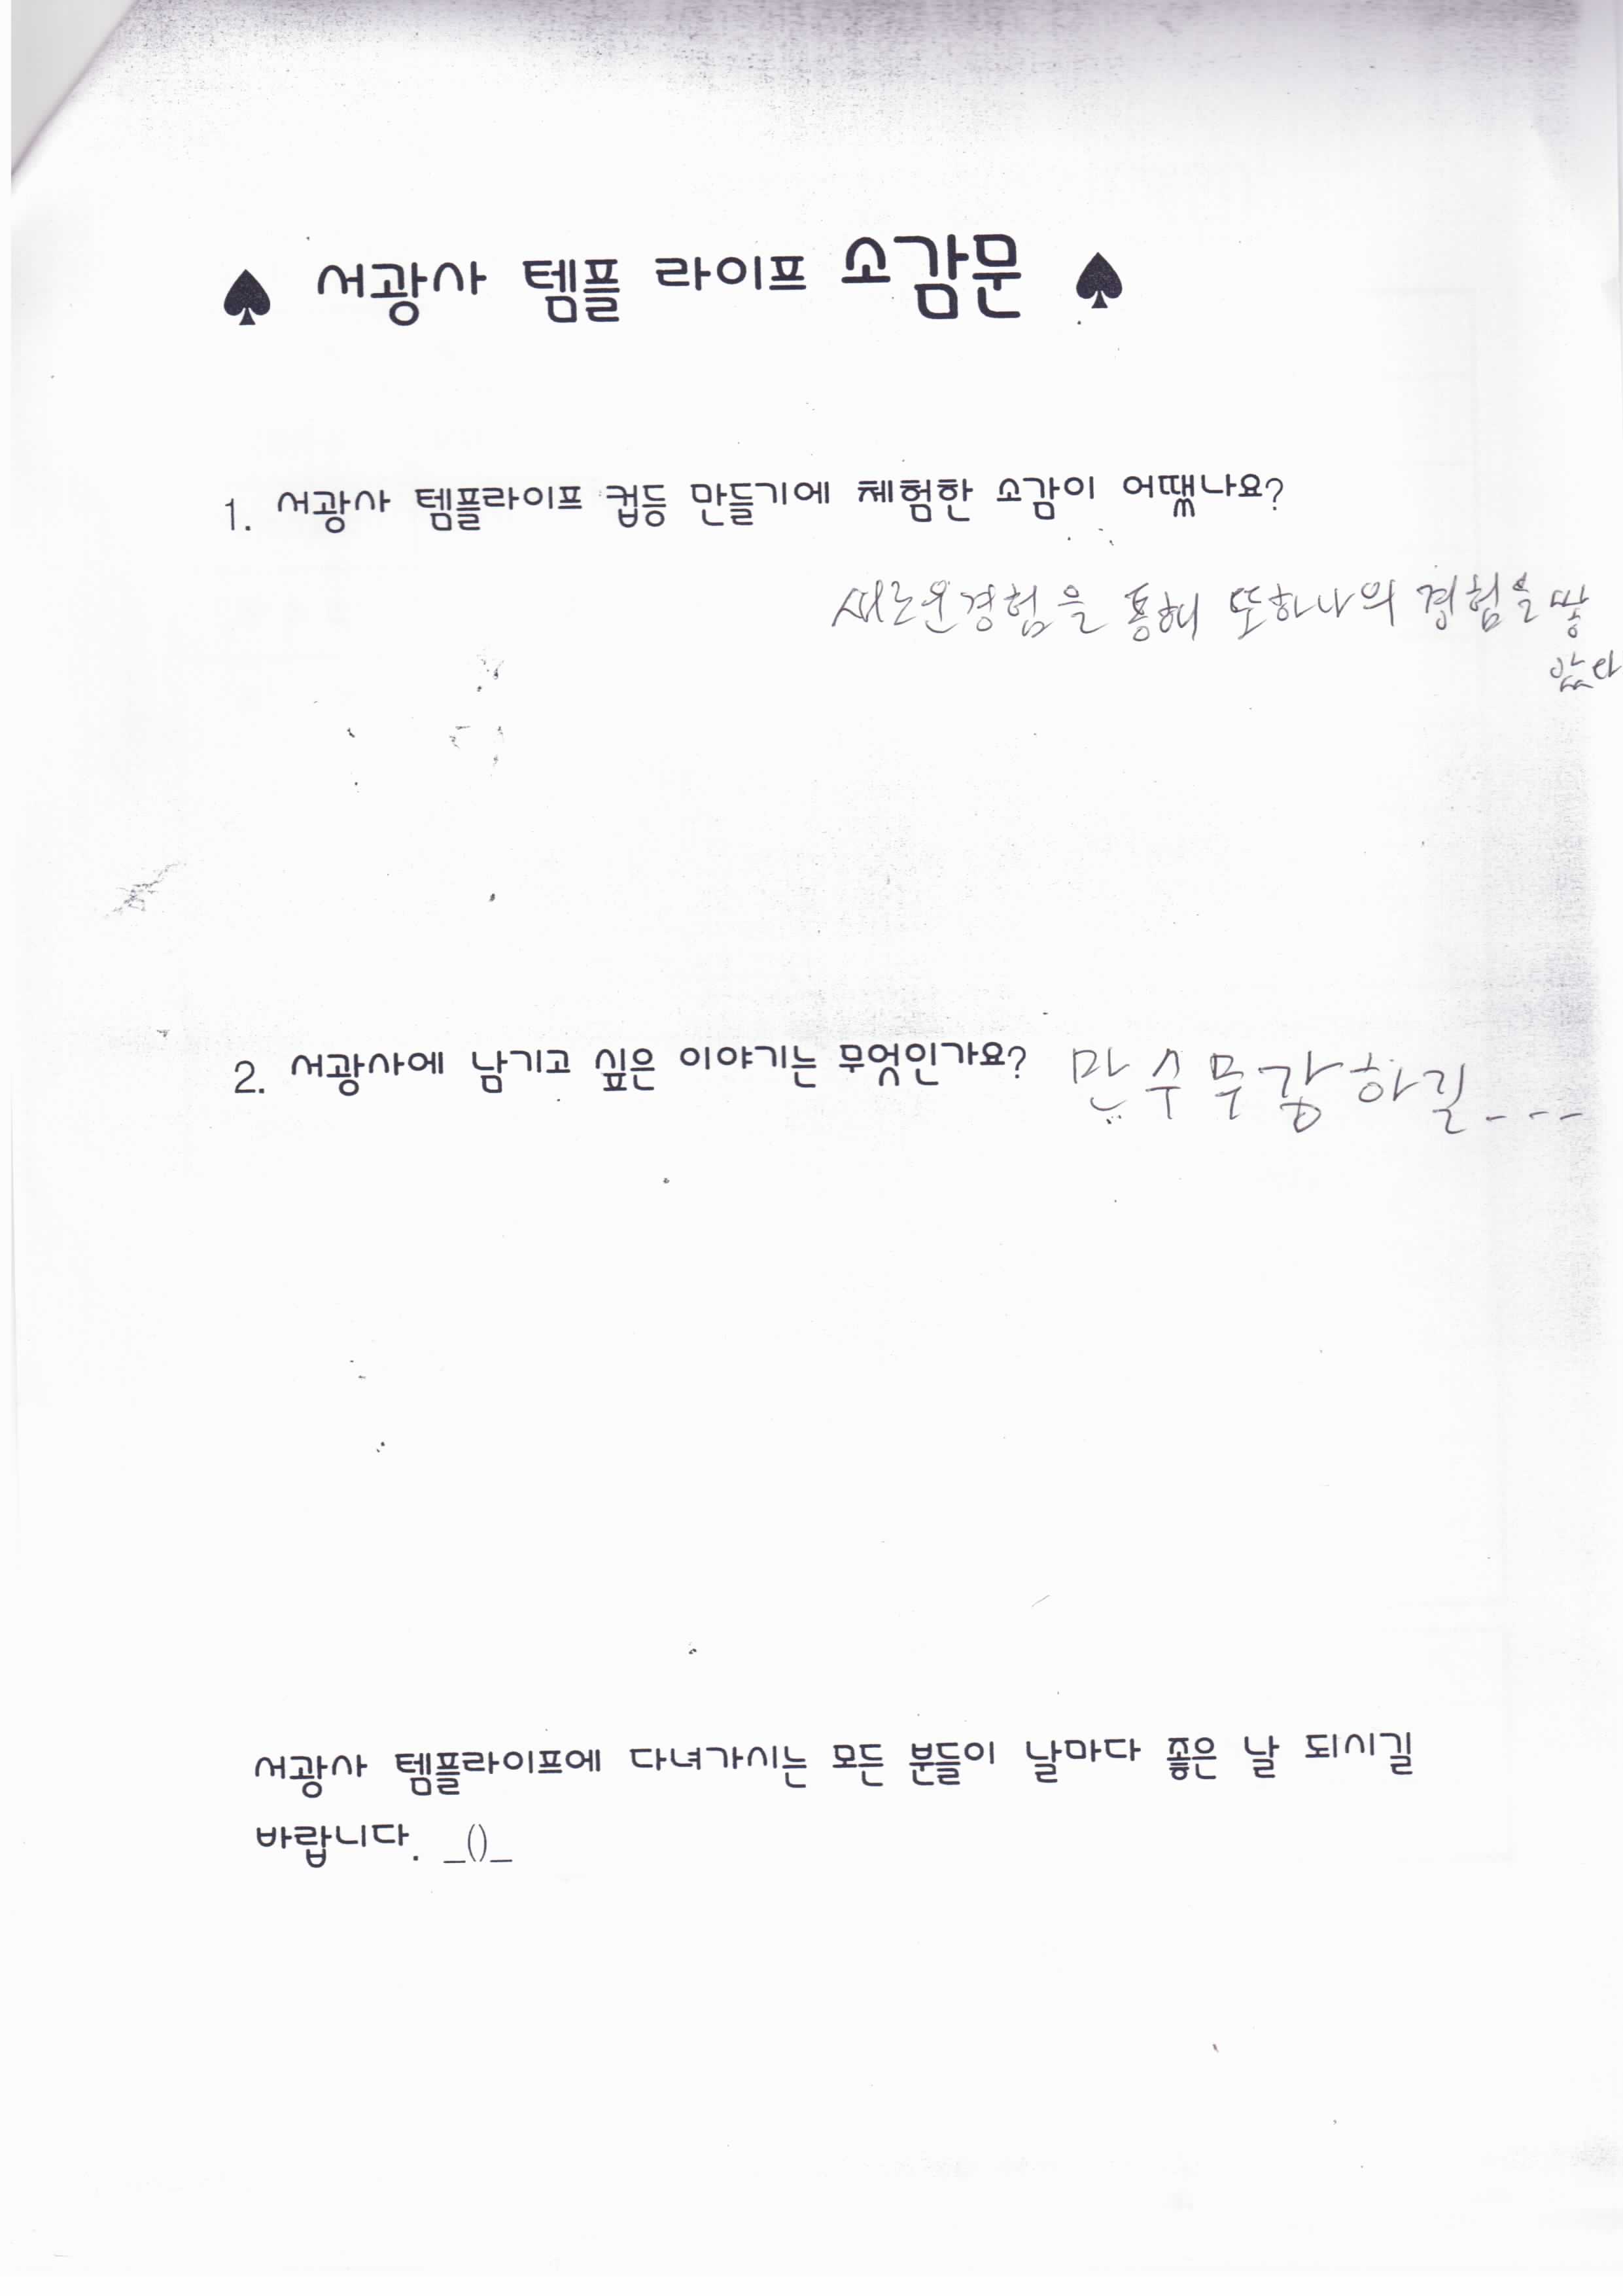 ♠ 서광사 템플 라이프 소감문 ♠
1. 서광사 템플라이프 컵등 만들기에 체험한 소감이 어땠나요?
새로운경험을 통해 또하나의 경험을 쌓
았다
2. 서광사에 남기고 싶은 이야기는 무엇인가요? 만수무강하길----
서광사 템플라이프에 다녀가시는 모든 분들이 날마다 좋은 날 되시길
바랍니다. _()_